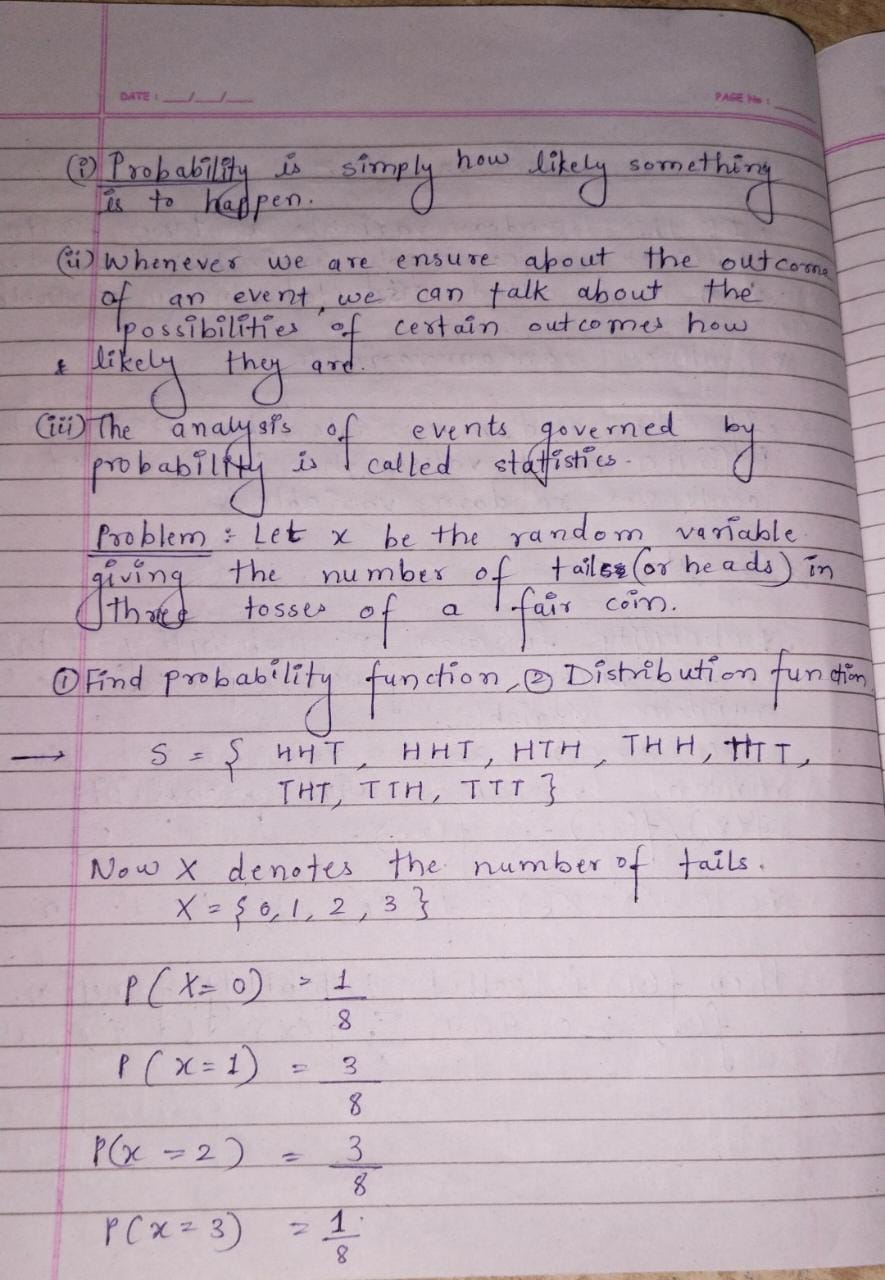 DATE: __/__/__ PAGE No:
(i) Probability is simply how likely something
is to happen.
(ii) Whenever we are ensure about the outcome
of an event, we can talk about the
possibilities of certain outcomes how
& likely they are.
(iii) The analysis of events governed by
probability is called statistics.
Problem : Let x be the random variable
giving the number of tails (or heads) in
three tosses of a fair coin.
① Find probability function, ② Distribution function
→ S = { HHT, HHT, HTH, THH, HTT,
THT, TTH, TTT }
Now X denotes the number of tails.
X = { 0, 1, 2, 3 }
P( X = 0) = 1/8
P ( x = 1) = 3/8
P(x = 2) = 3/8
P(x = 3) = 1/8